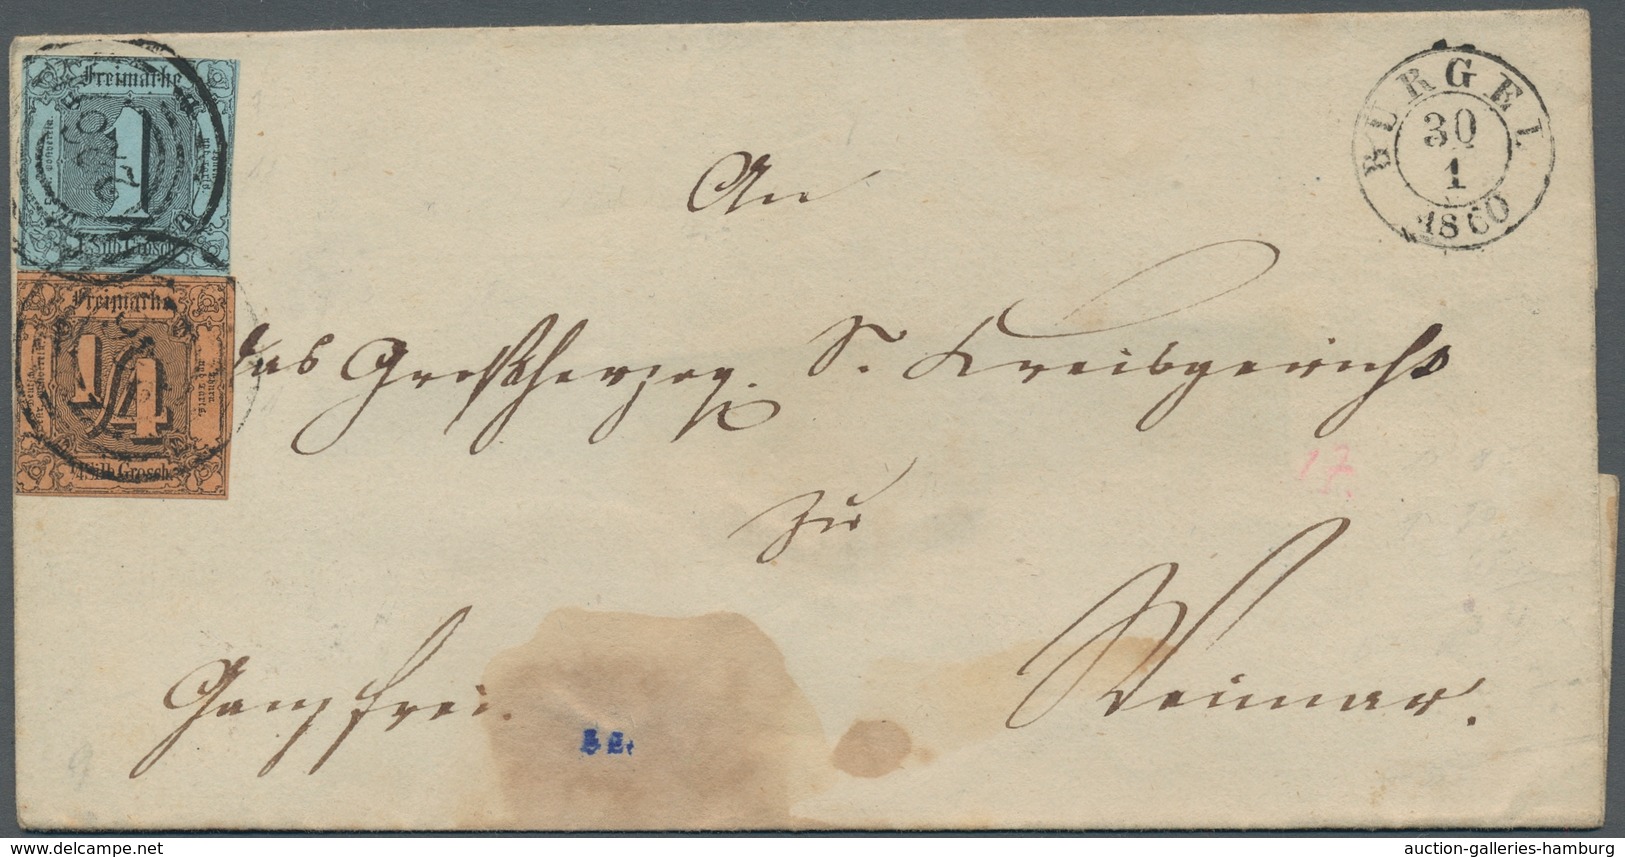 Freimarke
1
1. Silb. Grosch.
Freimarke
1/4
1/4. Silb. Grosch.
BURGEL
30
1
1860
An
das Großherzog. S. Kreisgericht
zu
Weimar.
Ganz frei.
17
auction-galleries-hamburg